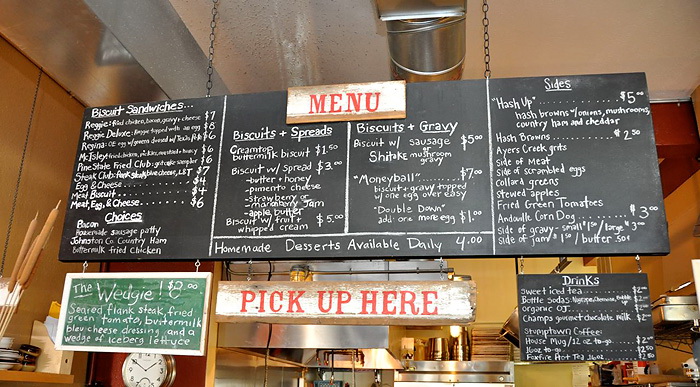 MENU
Biscuit Sandwiches...
Reggie: fried chicken, bacon, gravy & cheese $7
Reggie Deluxe: Reggie topped with an egg $8
$6
McIsley: fried chicken, pickles, mustard + honey $6
Pine State Fried Club:
Steak Club: $7
Egg & Cheese $4
Meat Biscuit $4
Meat, Egg, & Cheese $6
Choices
Bacon
Homemade sausage patty
Johnston Co. Country Ham
Buttermilk Fried Chicken
Biscuits + Spreads
Creamtop
buttermilk biscuit $1.50
Biscuit w/ Spread $3.00
-butter + honey
-pimento cheese
-strawberry or
marionberry Jam
-apple butter
Biscuit w/ fruit + $5.00
whipped cream
Biscuits + Gravy
Biscuit w/ sausage $5.00
or
Shitake mushroom
gravy
"Moneyball" $7.00
biscuit + gravy topped
w/ one egg over easy
"Double Down"
add one more egg $1.00
Homemade Desserts Available Daily 4.00
Sides
"Hash Up" $5.00
hash browns w/onions, mushrooms,
country ham and cheddar
Hash Browns $2.50
Ayers Creek grits
Side of Meat
Side of scrambled eggs
collard greens
stewed apples
Fried Green Tomatoes
Andouille Corn Dog $3.00
Side of gravy - small $1.50 / large $3.00
Side of Jam $1.50 / butter .50¢
The Wedgie! 8.00
Seared flank steak, fried
green tomato, buttermilk
bleu cheese dressing, and a
wedge of iceberg lettuce
PICK UP HERE
Drinks
sweet iced tea $2.00
Bottle Sodas:
organic OJ
champs gourmet chocolate milk
Stumptown Coffee:
House Mug/12 oz to-go
16oz to-go
Foxfire Hot Tea 16oz